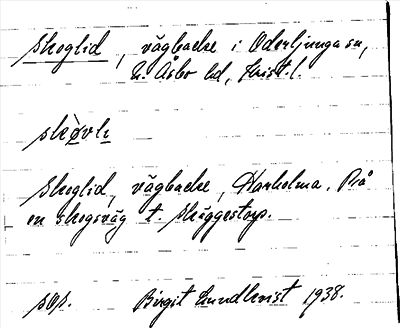 Skoglid, vägbacke i Oderljunga sn,
N. Åsbo hd, Krist. l.
Skoglid, vägbacke, Harholma. På
en skogsväg t. Skäggestorp.
pop. Birgit Lundkvist 1938.